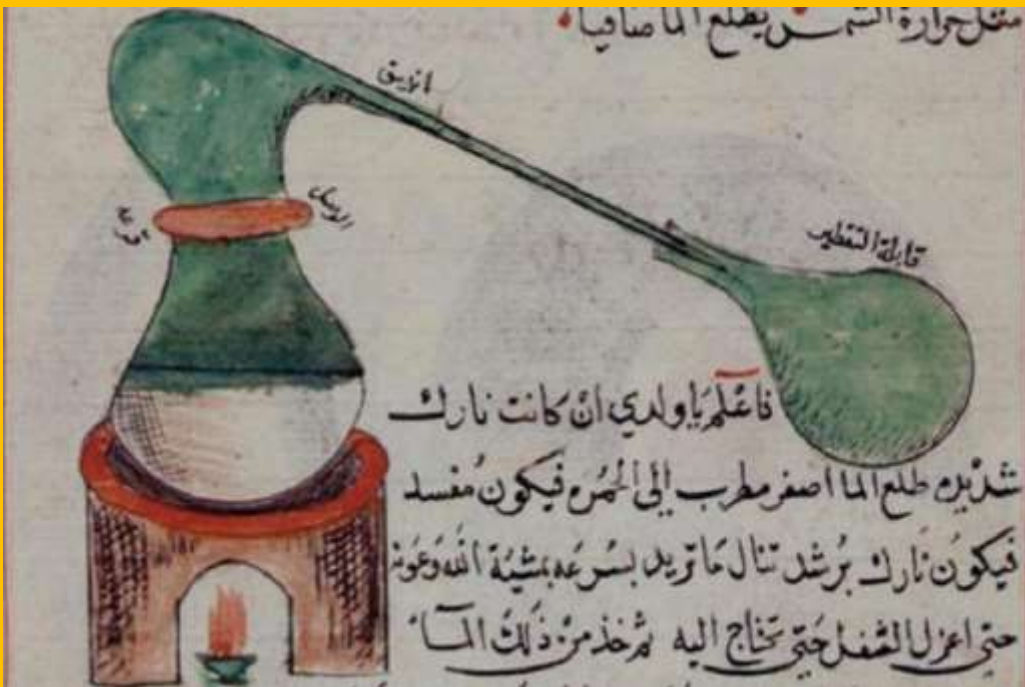 مثل حرارة الشمس يطلع الما صافيا
انبيق
قرعه
قابلة التقطير
فاعلم يا ولدي ان كانت نارك
شديده طلع الما اصفر مطرب الى الحمره فيكون مفسد
فيكون نارك برشد تنال ما تريد بسرعه بمشية الله وعونه
حتى اعزل الثفل حتى تحتاج اليه ثم خذ من ذلك المآء